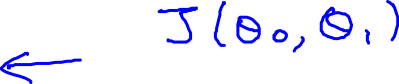 ← J(θ₀, θ₁)